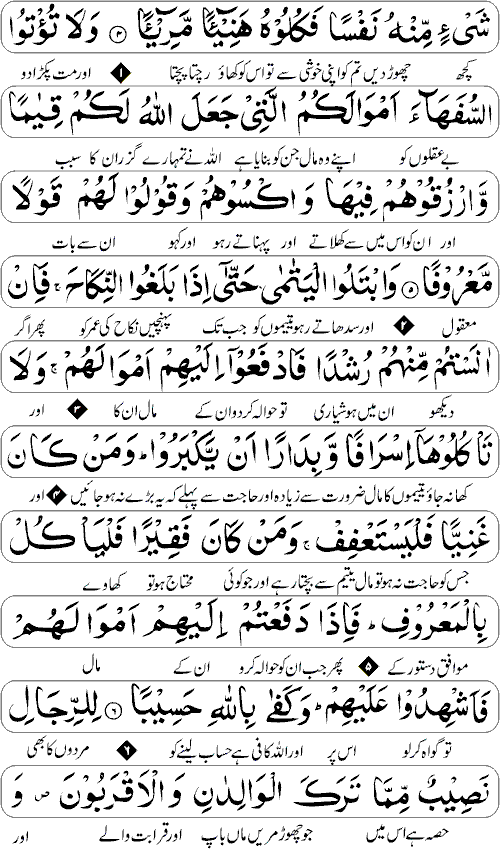 شَیْءٍ مِّنْهُ نَفْسًا فَكُلُوْهُ هَنِیْٓـًٔا مَّرِیْٓـًٔا ۝۴ وَلَا تُؤْتُوا
کچھ چھوڑ دیں تم کو اپنی خوشی سے تو اس کو کھاؤ رچتا پچتا ۱ اور مت پکڑا دو
السُّفَهَآءَ اَمْوَالَكُمُ الَّتِیْ جَعَلَ اللّٰهُ لَكُمْ قِیٰمًا
بے عقلوں کو اپنے وہ مال جن کو بنایا ہے اللہ نے تمہارے گزران کا سبب
وَّارْزُقُوْهُمْ فِیْهَا وَاكْسُوْهُمْ وَقُوْلُوْا لَهُمْ قَوْلًا
اور ان کو اس میں سے کھلاتے اور پہناتے رہو اور کہو ان سے بات
مَّعْرُوْفًا ۝۵ وَابْتَلُوا الْیَتٰمٰی حَتّٰۤی اِذَا بَلَغُوا النِّكَاحَ ۚ فَاِنْ
معقول ۲ اور سدھاتے رہو یتیموں کو جب تک پہنچیں نکاح کی عمر کو پھر اگر
اٰنَسْتُمْ مِّنْهُمْ رُشْدًا فَادْفَعُوْۤا اِلَیْهِمْ اَمْوَالَهُمْ ۚ وَلَا
دیکھو ان میں ہوشیاری تو حوالہ کر دو ان کے مال ان کا ۳ اور
تَاْكُلُوْهَاۤ اِسْرَافًا وَّبِدَارًا اَنْ یَّكْبَرُوْا ؕ وَمَنْ كَانَ
کھا نہ جاؤ یتیموں کا مال ضرورت سے زیادہ اور حاجت سے پہلے کہ یہ بڑے نہ ہو جائیں ۴ اور
غَنِیًّا فَلْیَسْتَعْفِفْ ۚ وَمَنْ كَانَ فَقِیْرًا فَلْیَاْكُلْ
جس کو حاجت نہ ہو تو مال یتیم سے بچتا رہے اور جو کوئی محتاج ہو تو کھاوے
بِالْمَعْرُوْفِ ؕ فَاِذَا دَفَعْتُمْ اِلَیْهِمْ اَمْوَالَهُمْ
موافق دستور کے ۵ پھر جب ان کو حوالہ کرو ان کے مال
فَاَشْهِدُوْا عَلَیْهِمْ ؕ وَكَفٰی بِاللّٰهِ حَسِیْبًا ۝۶ لِلرِّجَالِ
تو گواہ کر لو اس پر اور اللہ کافی ہے حساب لینے کو ۶ مردوں کا بھی
نَصِیْبٌ مِّمَّا تَرَكَ الْوَالِدٰنِ وَالْاَقْرَبُوْنَ ۪ وَ
حصہ ہے اس میں جو چھوڑ مریں ماں باپ اور قرابت والے اور